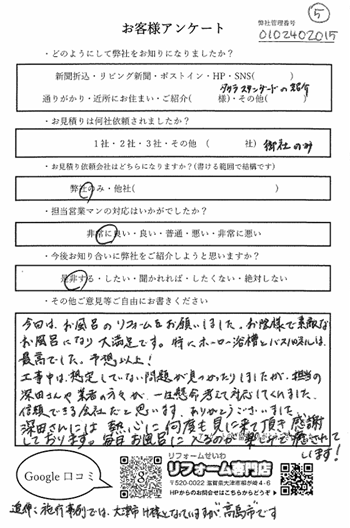 ⑤
お客様アンケート
弊社管理番号
0102402015
・どのようにして弊社をお知りになりましたか?
新聞折込・リビング新聞・ポストイン・HP・SNS( )
通りがかり・近所にお住まい・ご紹介( 様)・その他( ) タカラスタンダードの紹介
・お見積りは何社依頼されましたか?
1社・2社・3社・その他 ( 社) 御社のみ
・お見積り依頼会社はどちらになりますか?(書ける範囲で結構です)
弊社のみ・他社( )
・担当営業マンの対応はいかがでしたか?
非常に良い・良い・普通・悪い・非常に悪い
・今後お知り合いに弊社をご紹介しようと思いますか?
是非する・したい・聞かれれば・したくない・絶対しない
・その他ご意見等ご自由にお書きください
今回は、お風呂のリフォームをお願いしました。お陰様で素敵な
お風呂になり大満足です。特にホーロー浴槽とパネルは、
最高でした。予想以上!
工事中は、想定していない問題が見つかりましたが、担当の
深田さんや業者の方々が、一生懸命考えて対応してくれました。
信頼できる会社だと思います。ありがとうございました。
深田さんには熱心に何度も見に来て頂き感謝
しております。毎日お風呂に入るのが楽しみで癒されて
います!
Google口コミ
リフォームせいわ
リフォーム専門店
〒520-0022 滋賀県大津市柳が崎4-6
HPからのお問合せはこちらからどうぞ
追伸:施行事例では、大津市H様となっていますが、高島市です